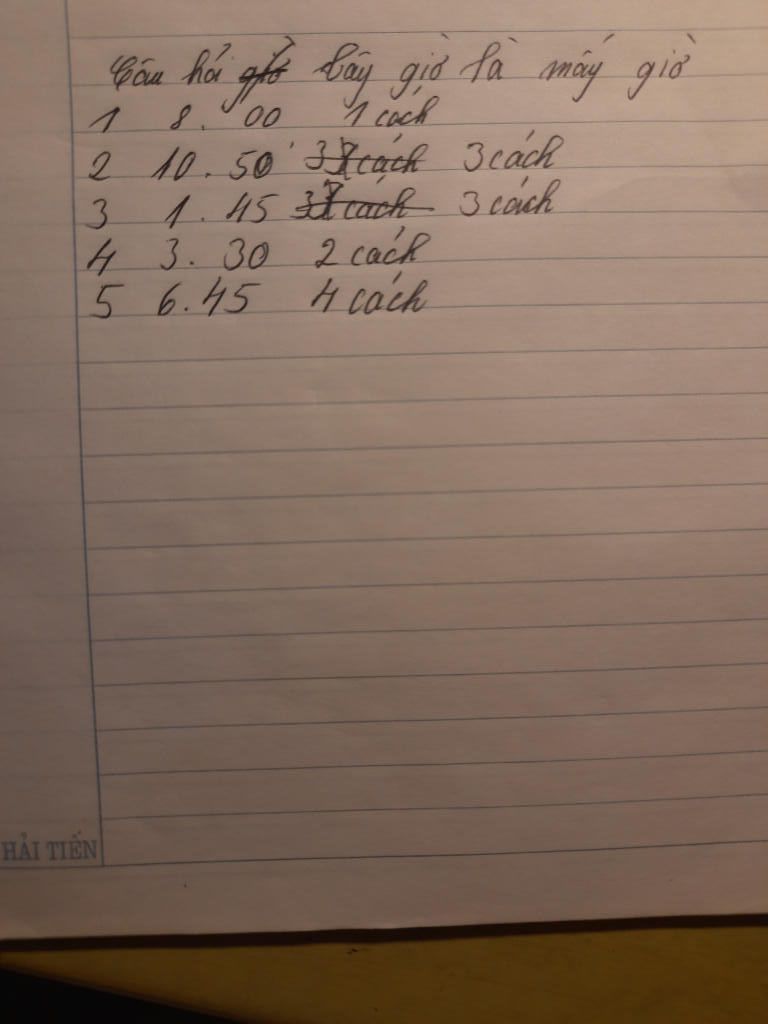 Câu hỏi giờ bây giờ là mấy giờ
1 8.00 1 cách
2 10.50 3 cách 3 cách
3 1.45 3 cách 3 cách
4 3.30 2 cách
5 6.45 4 cách
HẢI TIẾN